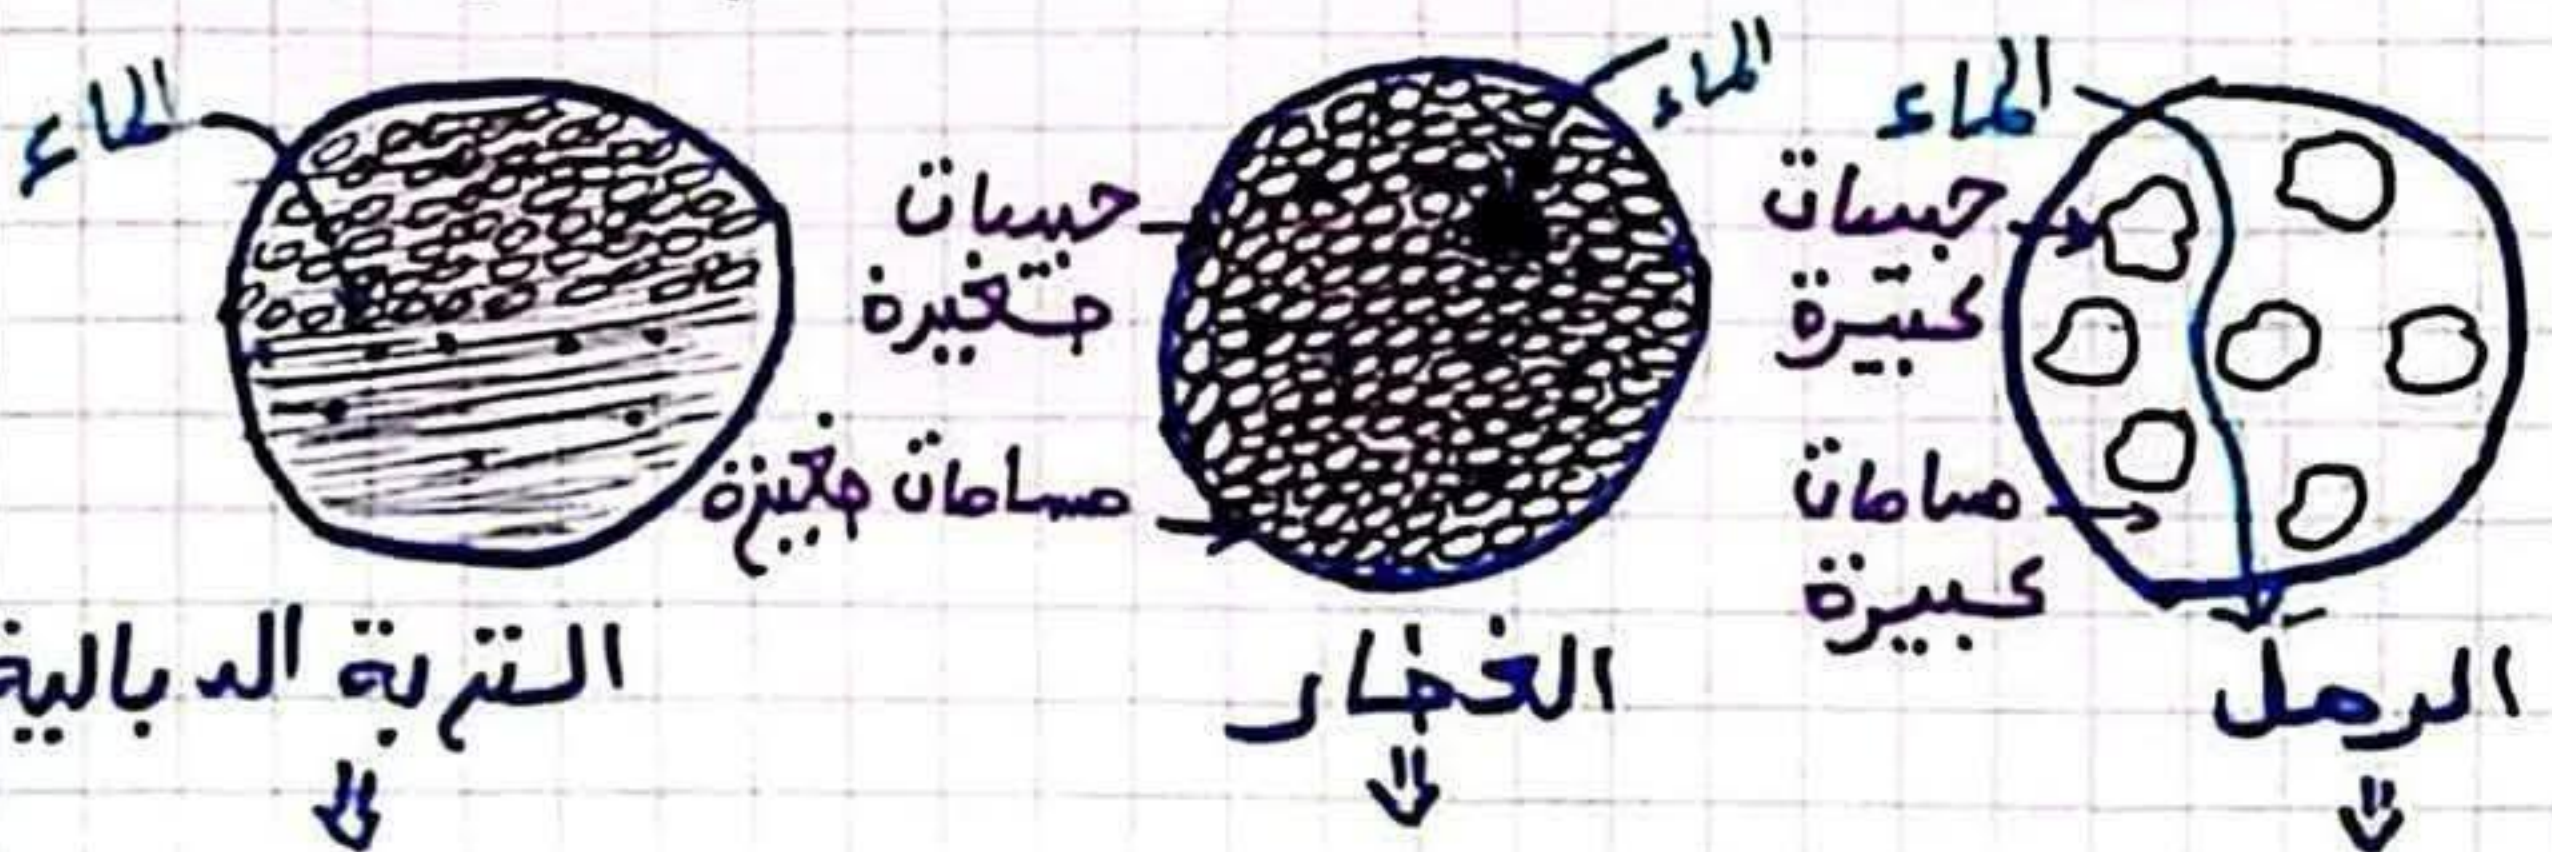 الماء
حبيبات
كبيرة
مسامات
كبيرة
الرمل
الماء
حبيبات
صغيرة
مسامات صغيرة
الفخار
الماء
التربة الدبالية